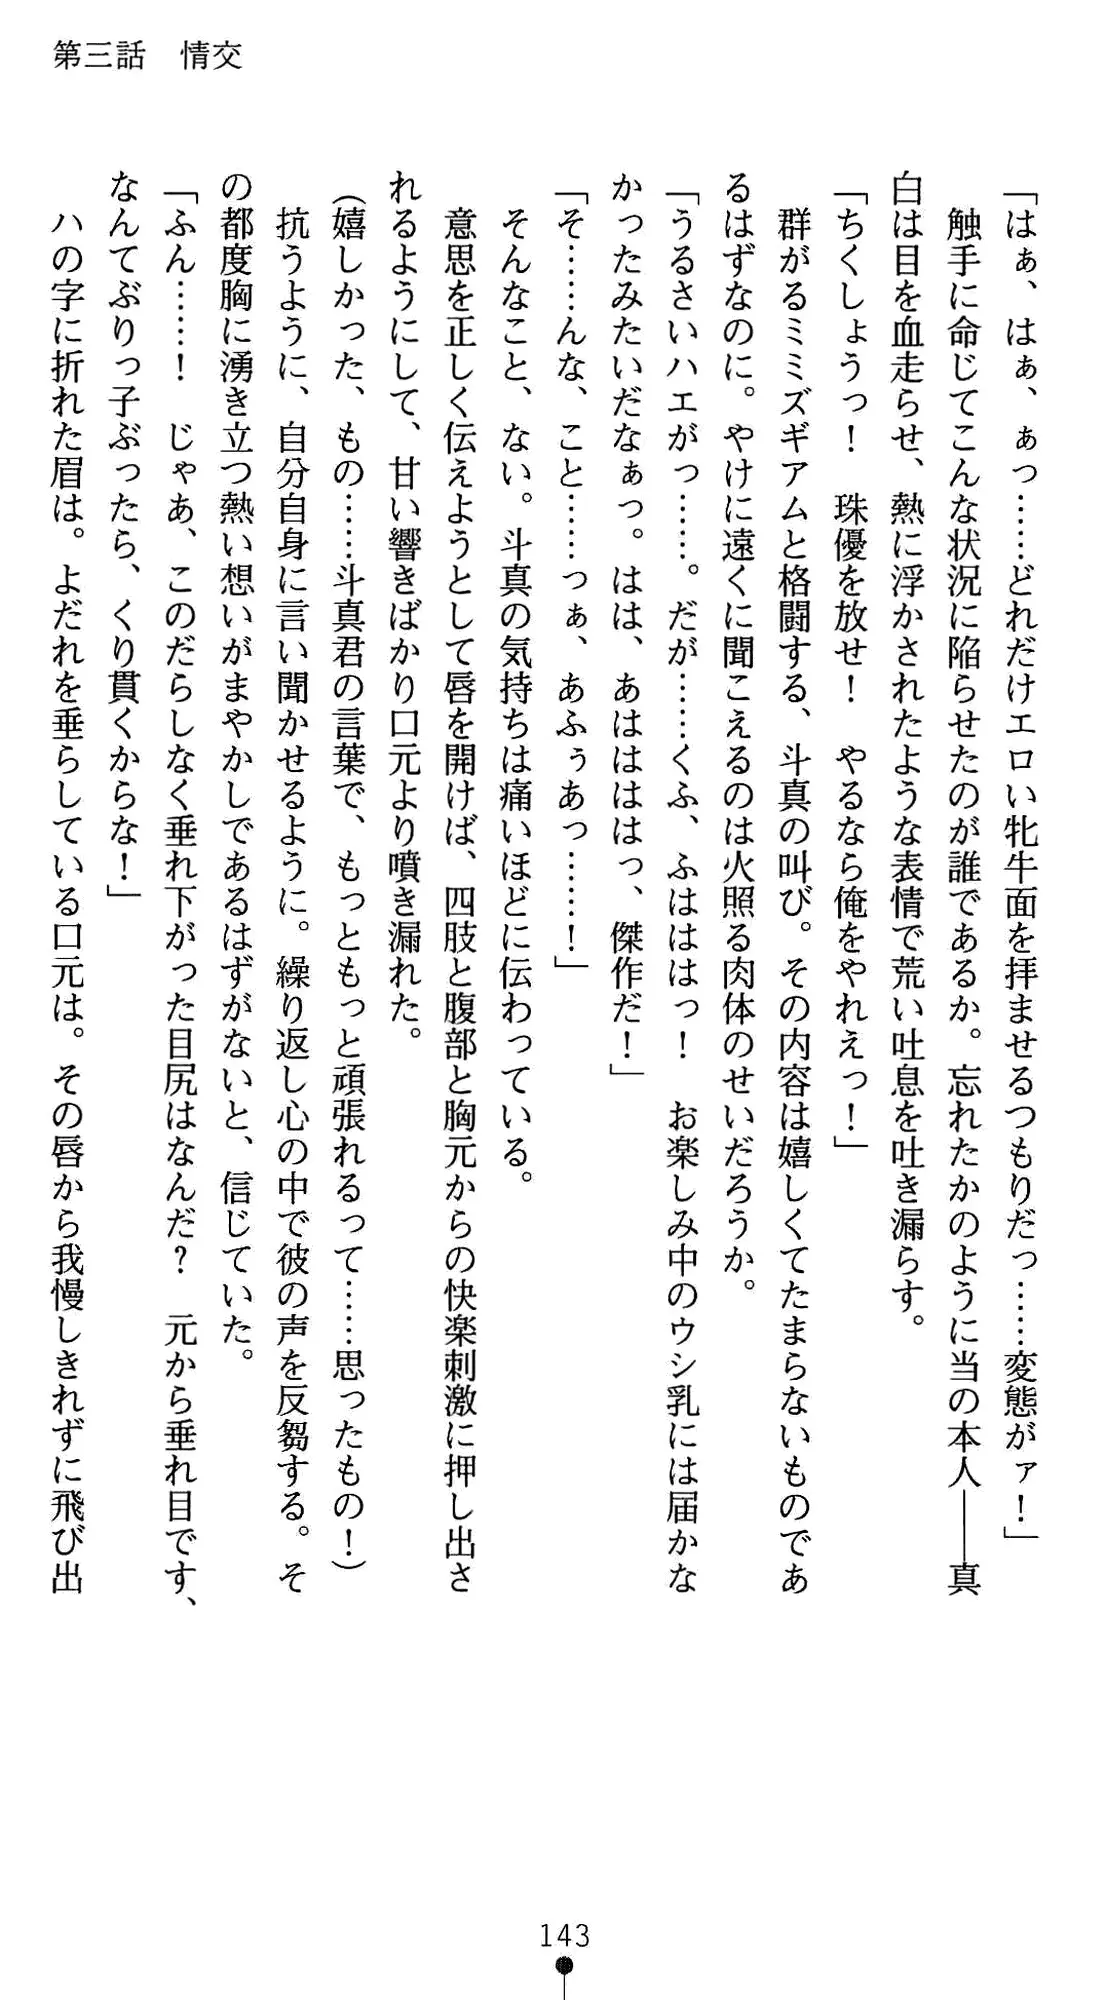 第三話　情交
「はぁ、はぁ、ぁっ……どれだけエロい牝牛面を拝ませるつもりだっ……変態がァ！」
　触手に命じてこんな状況に陥らせたのが誰であるか。忘れたかのように当の本人――真
白は目を血走らせ、熱に浮かされたような表情で荒い吐息を吐き漏らす。
「ちくしょうっ！　珠優を放せ！　やるなら俺をやれえっ！」
　群がるミミズギアムと格闘する、斗真の叫び。その内容は嬉しくてたまらないものであ
るはずなのに。やけに遠くに聞こえるのは火照る肉体のせいだろうか。
「うるさいハエがっ……。だが……くふ、ふはははっ！　お楽しみ中のウシ乳には届かな
かったみたいだなぁっ。はは、あはははははっ、傑作だ！」
「そ……んな、こと……っぁ、あふぅあっ……！」
　そんなこと、ない。斗真の気持ちは痛いほどに伝わっている。
　意思を正しく伝えようとして唇を開けば、四肢と腹部と胸元からの快楽刺激に押し出さ
れるようにして、甘い響きばかり口元より噴き漏れた。
（嬉しかった、もの……斗真君の言葉で、もっともっと頑張れるって……思ったもの！）
　抗うように、自分自身に言い聞かせるように。繰り返し心の中で彼の声を反芻する。そ
の都度胸に湧き立つ熱い想いがまやかしであるはずがないと、信じていた。
「ふん……！　じゃあ、このだらしなく垂れ下がった目尻はなんだ？　元から垂れ目です、
なんてぶりっ子ぶったら、くり貫くからな！」
　ハの字に折れた眉は。よだれを垂らしている口元は。その唇から我慢しきれずに飛び出
143